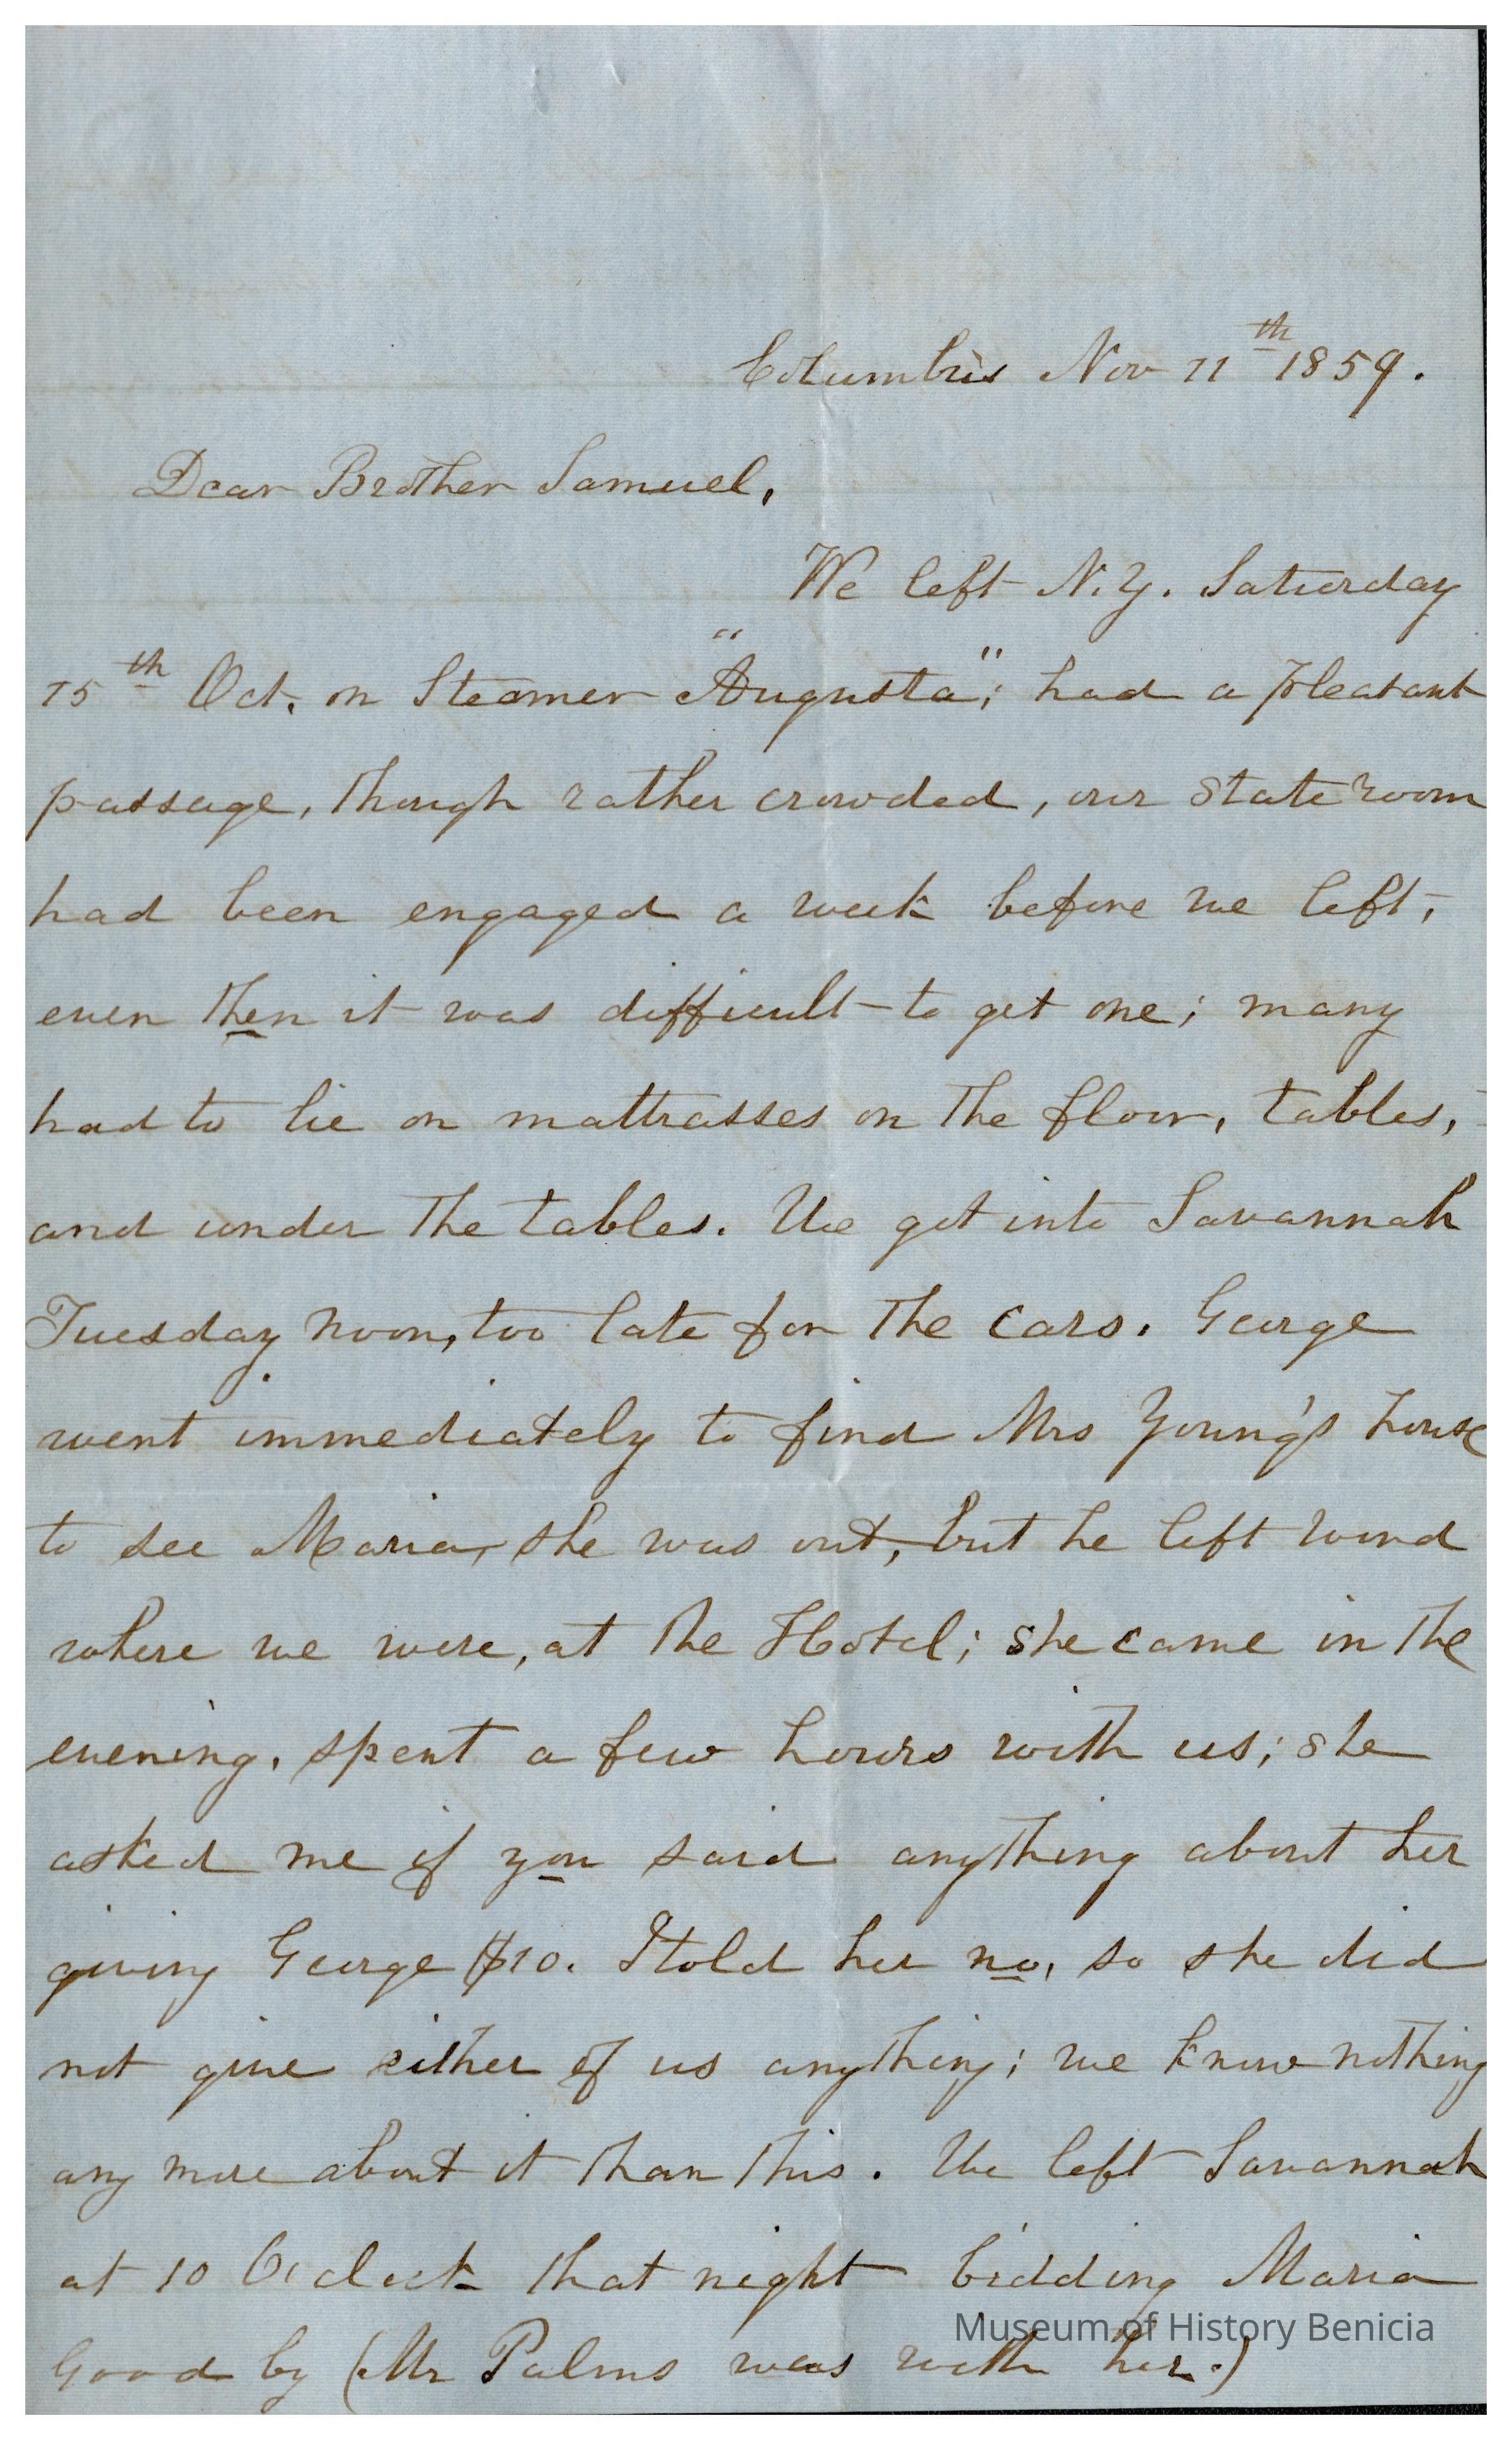 Columbus Nov 11th 1859.
Dear Brother Samuel,
We left N.Y. Saturday
15th Oct. on Steamer "Augusta"; had a pleasant
passage, though rather crowded, our state room
had been engaged a week before we left,
even then it was difficult to get one; many
had to lie on mattrasses on the floor, tables,
and under the tables. We got into Savannah
Tuesday noon, too late for the cars. George
went immediately to find Mrs Young's house
to see Maria, she was out, but he left word
where we were, at the Hotel; she came in the
evening, spent a few hours with us; she
asked me if you said anything about her
giving George $10. I told her no, so she did
not give either of us anything; we know nothing
any more about it than this. We left Savannah
at 10 O'clock that night bidding Maria
Good by (Mr Palms was with her.)
Museum of History Benicia